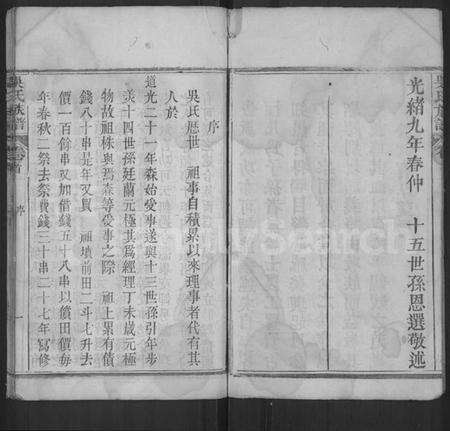 光緒九年春仲　十五世孫恩選敬述
序
吳氏歷世　祖事自積累以來理事者代有其
人於
道光二十一年森始愛事遂與十三世孫引年步
美十四世孫廷蘭元極其為經理丁未歲元極
物故祖株與瑪森等愛事之際　祖上累有債
錢八十串是年又買　祖墳前田二斗七升去
價一百餘串又加借錢五十八串以償田價每
年春秋二祭去祭費錢三十串二十七年寫修
吳氏族譜
卷首
序
一